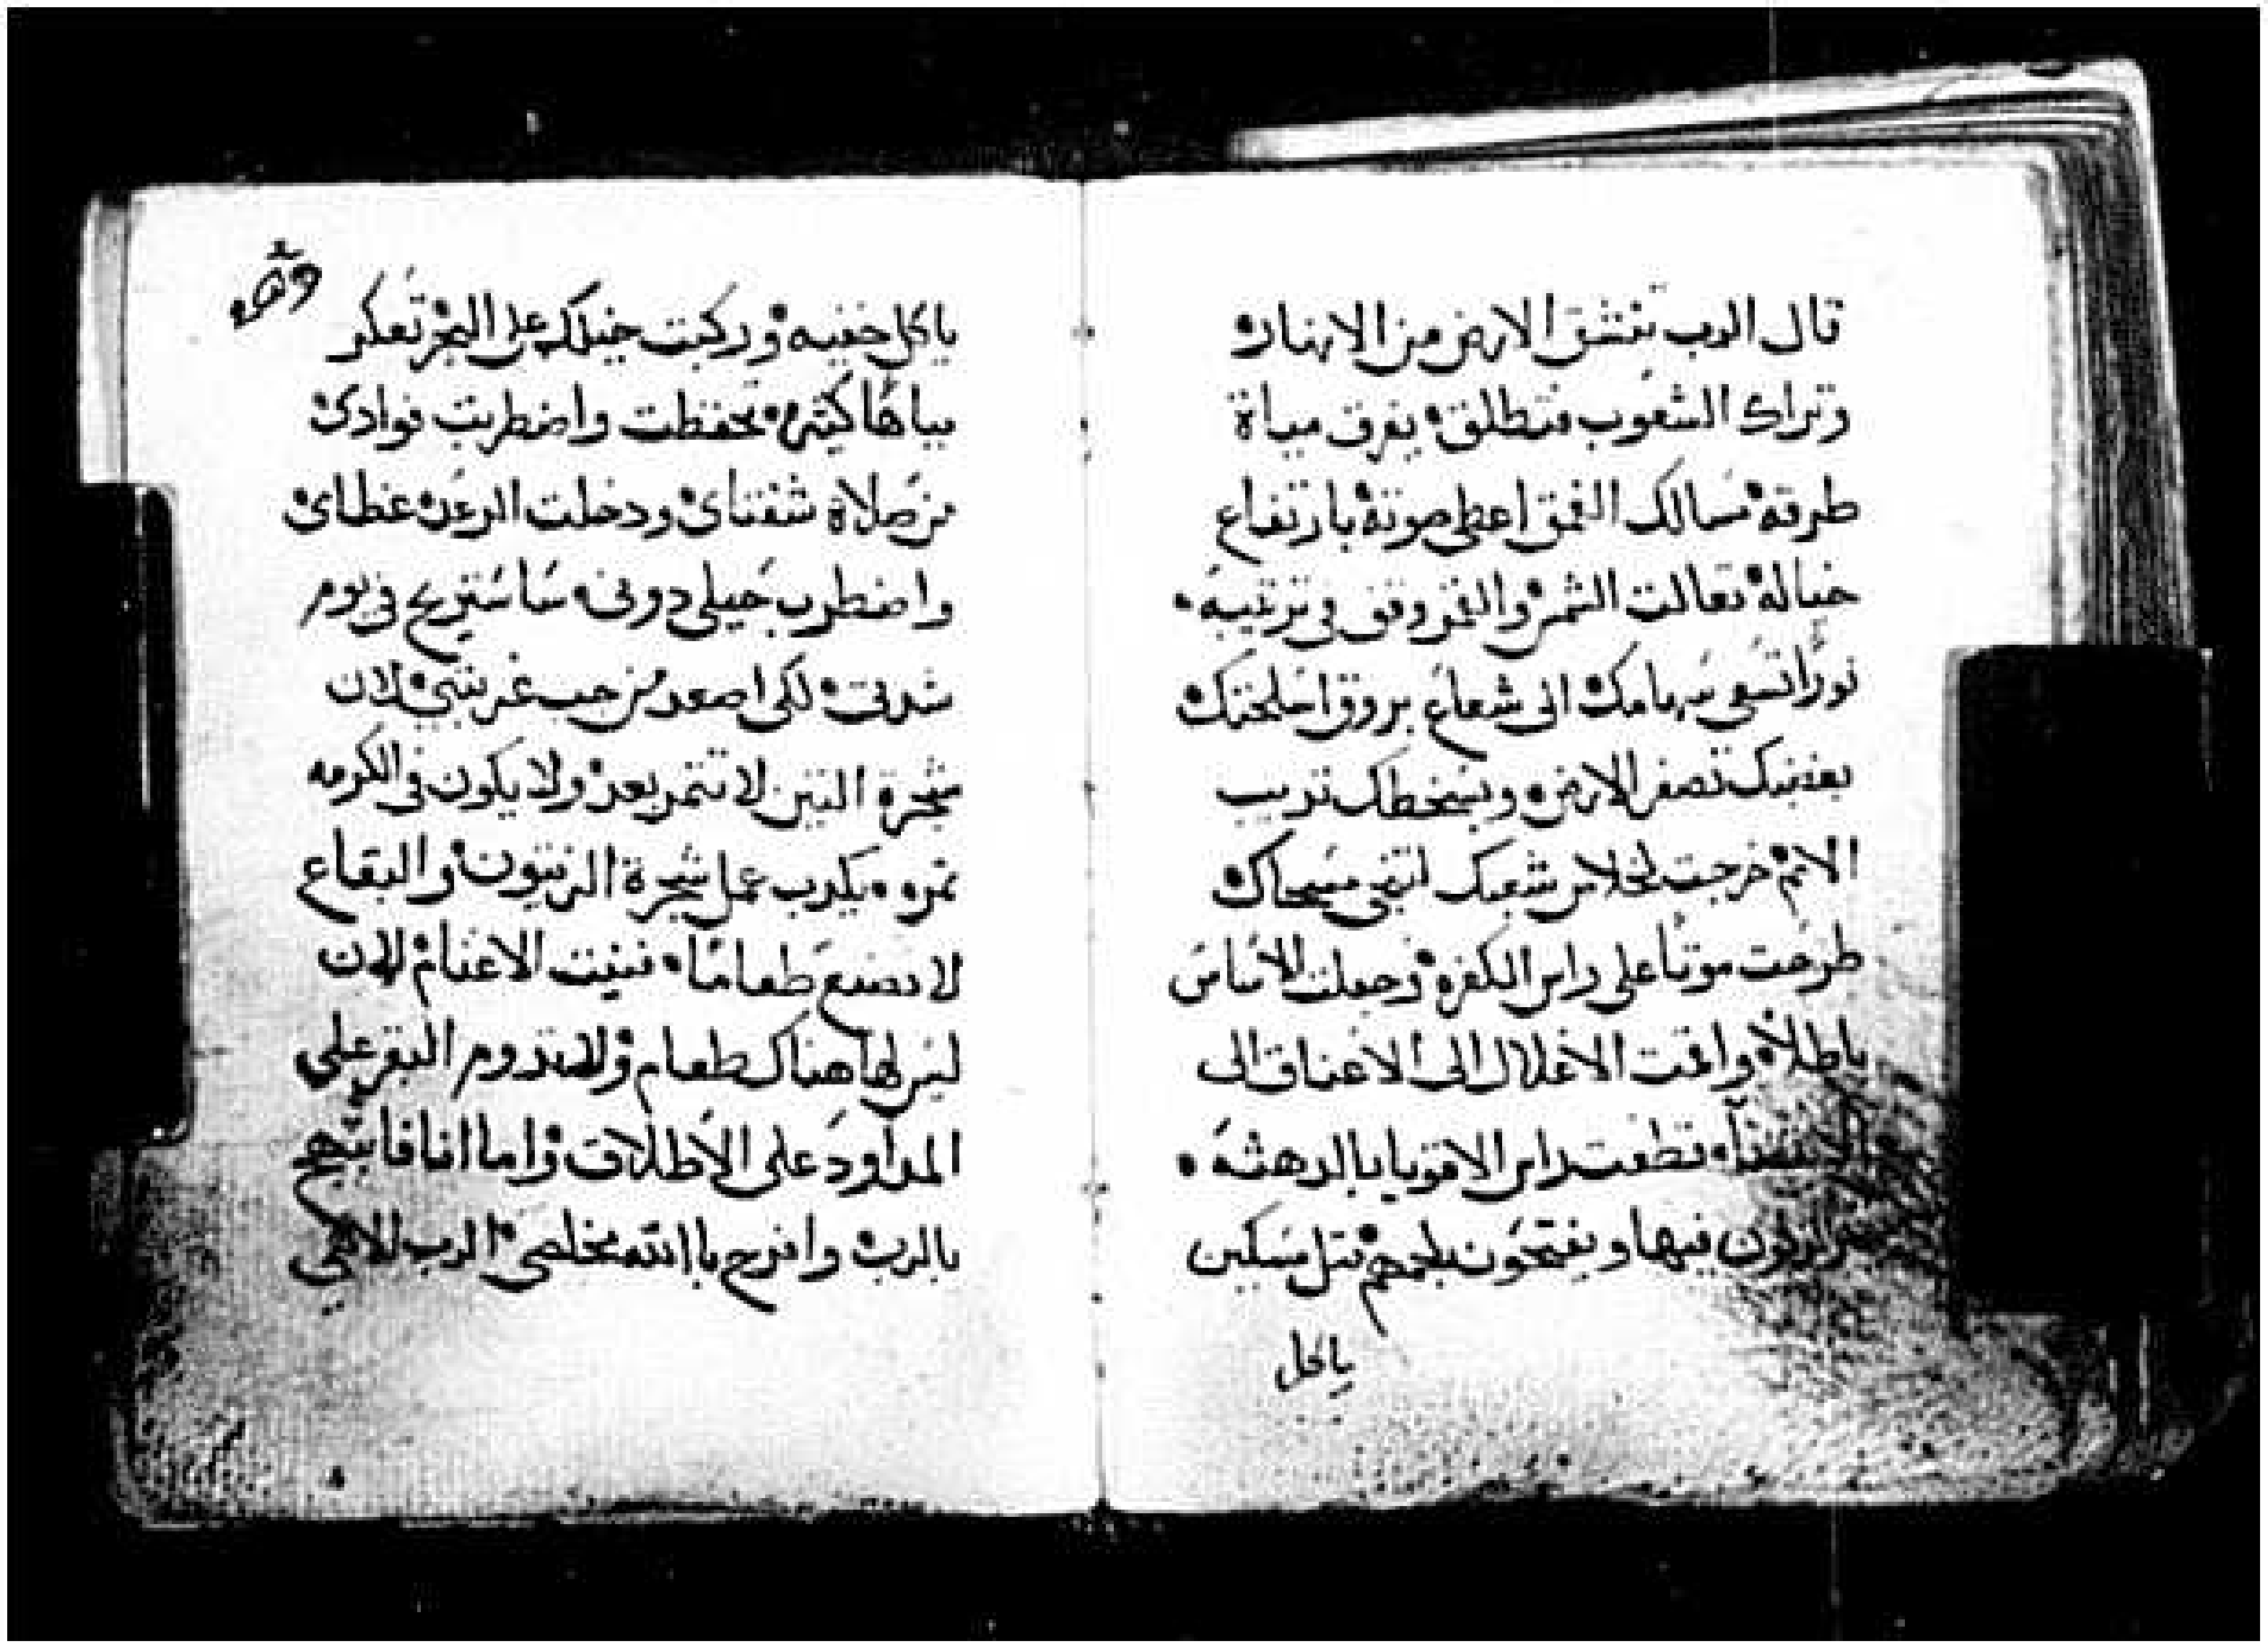 قال الرب تنشق الارض من الانهار
وتراك الشعوب فتطلق يفرق مياة
طرقه مسالك الغمق اعطى صوته بارتفاع
خياله تعالت الشمس والقمر وقف في ترتيبه
نورًا تسعى سهامك الى شعاع بروق اسلحتك
بغضبك تصغر الارض وبسخطك تذيب
الامم خرجت لخلاص شعبك لتنجي مسيحاك
طرحت موتًا على راس الكفره وجعلت الاساس
باطلاً واقمت الاغلال الى الاعناق الى
الانقضاء قطعت راس الاقويا بالدهشه
يتزلزلون فيها ويفتحون بلجمهم مثل مسكين
ياكل
ياكل خفيه وركبت خيلك على البحر تعكر
مياهًا كثيره تحفظت واضطربت فوادى
من صلاة شفتاى ودخلت الرعده عظاى
واضطرب حيلى دونى ساستريح في يوم
شدتى لكى اصعد من حب غربتي لان
شجرة التين لا تثمر بعد ولا يكون في الكرمه
ثمره يكدب عمل شجرة الزيتون والبقاع
لا تصنع طعامًا فنيت الاغنام لان
ليس لها هناك طعام ولا تدوم البقر على
المداود على الاطلاق واما انا فابتهج
بالرب وافرح باالله مخلصى الرب الاهي